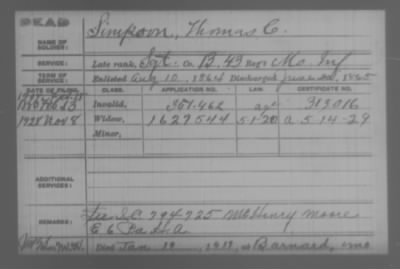 DEAD
NAME OF SOLDIER: Simpson, Thomas C.
SERVICE: Late rank, Sgt. Co. B, 43 Reg't Mo. Inf
TERM OF SERVICE: Enlisted Aug 10, 1864 Discharged June 30, 1865
DATE OF FILING. CLASS. APPLICATION NO. LAW. CERTIFICATE NO.
Invalid, 357.462 313016
1928 Nov 8 Widow, 1627544 5-1-20 a. 5-14-29
Minor,
ADDITIONAL SERVICES:
REMARKS: See I.C 794725 McHenry Moore
E 6 Pa H. A
Died Jan 19, 1917, at Barnard, Mo